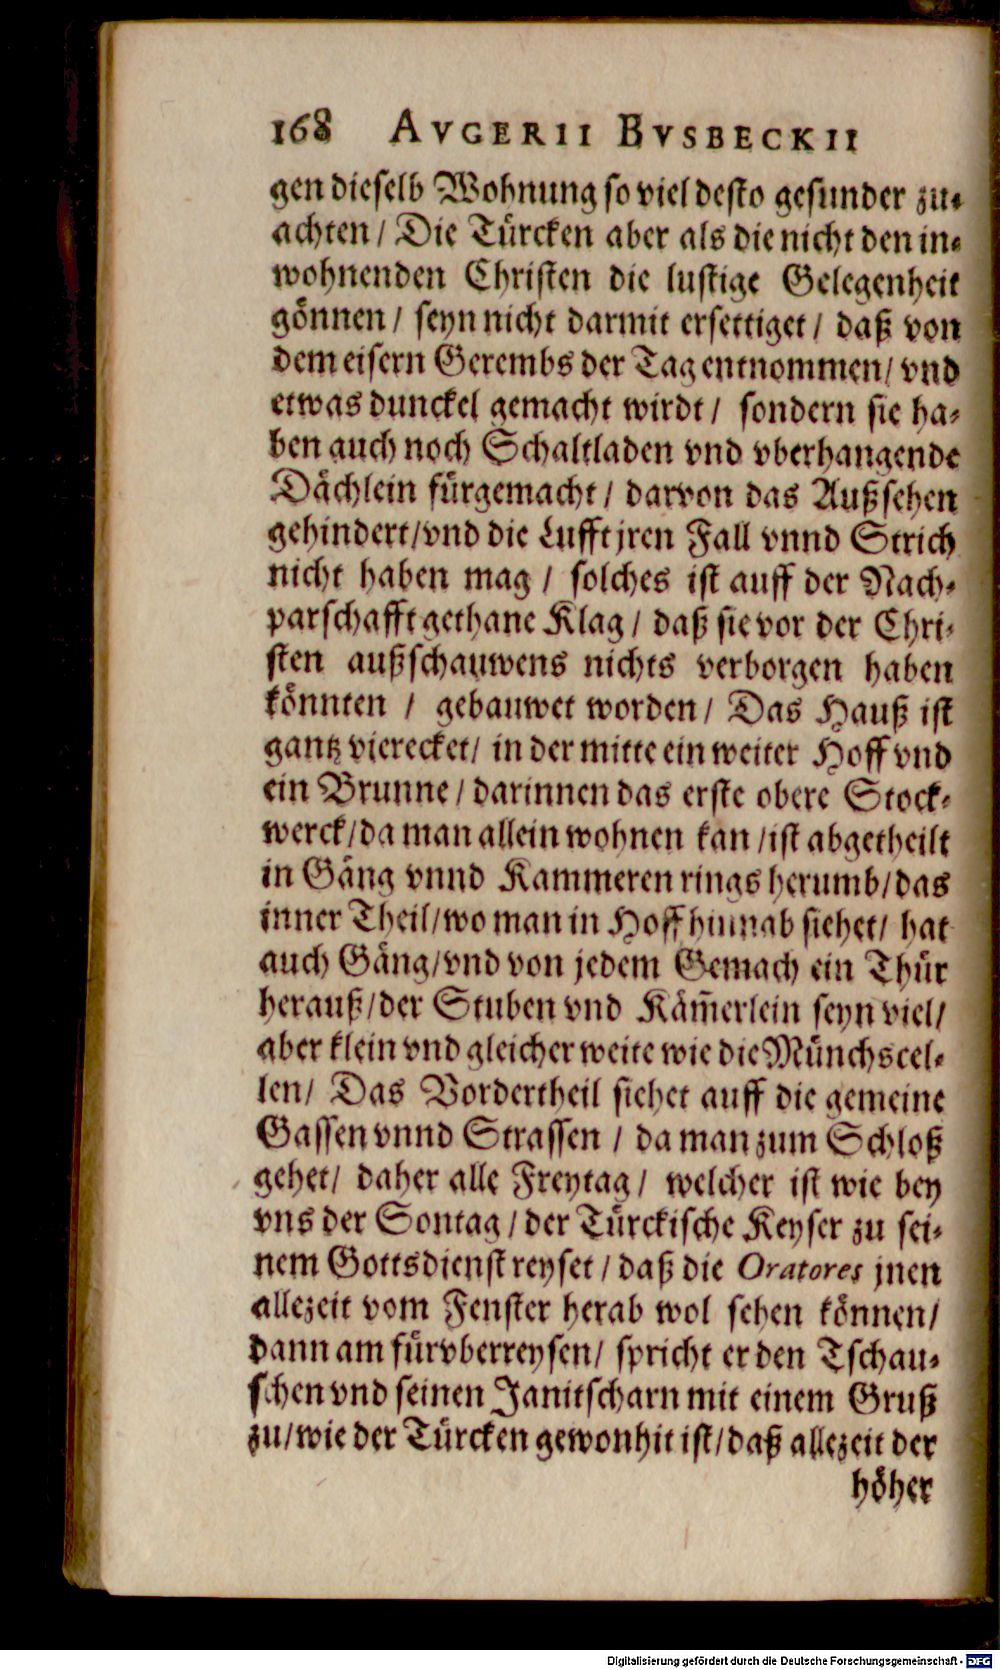 168 AVGERII BVSBECKII
gen dieselb Wohnung so viel desto gesunder zu-
achten / Die Türcken aber als die nicht den in-
wohnenden Christen die lustige Gelegenheit
gönnen / seyn nicht darmit ersettiget / daß von
dem eisern Gerembs der Tag entnommen / vnd
etwas dunckel gemacht wirdt / sondern sie ha-
ben auch noch Schaltladen vnd vberhangende
Dächlein fürgemacht / darvon das Außsehen
gehindert / vnd die Lufft jren Fall vnnd Strich
nicht haben mag / solches ist auff der Nach-
parschafft gethane Klag / daß sie vor der Chri-
sten außschauwens nichts verborgen haben
könnten / gebauwet worden / Das Hauß ist
gantz vierecket / in der mitte ein weiter Hoff vnd
ein Brunne / darinnen das erste obere Stock-
werck / da man allein wohnen kan / ist abgetheilt
in Gäng vnnd Kammeren rings herumb / das
inner Theil / wo man in Hoff hinnab siehet / hat
auch Gäng / vnd von jedem Gemach ein Thür
herauß / der Stuben vnd Käm̃erlein seyn viel /
aber klein vnd gleicher weite wie die Münchscel-
len / Das Vordertheil siehet auff die gemeine
Gassen vnnd Strassen / da man zum Schloß
gehet / daher alle Freytag / welcher ist wie bey
vns der Sontag / der Türckische Keyser zu sei-
nem Gottsdienst reyset / daß die Oratores jnen
allezeit vom Fenster herab wol sehen können /
dann am fürvberreysen / spricht er den Tschau-
schen vnd seinen Janitscharn mit einem Gruß
zu / wie der Türcken gewonhit ist / daß allezeit der
höher
Digitalisierung gefördert durch die Deutsche Forschungsgemeinschaft - DFG